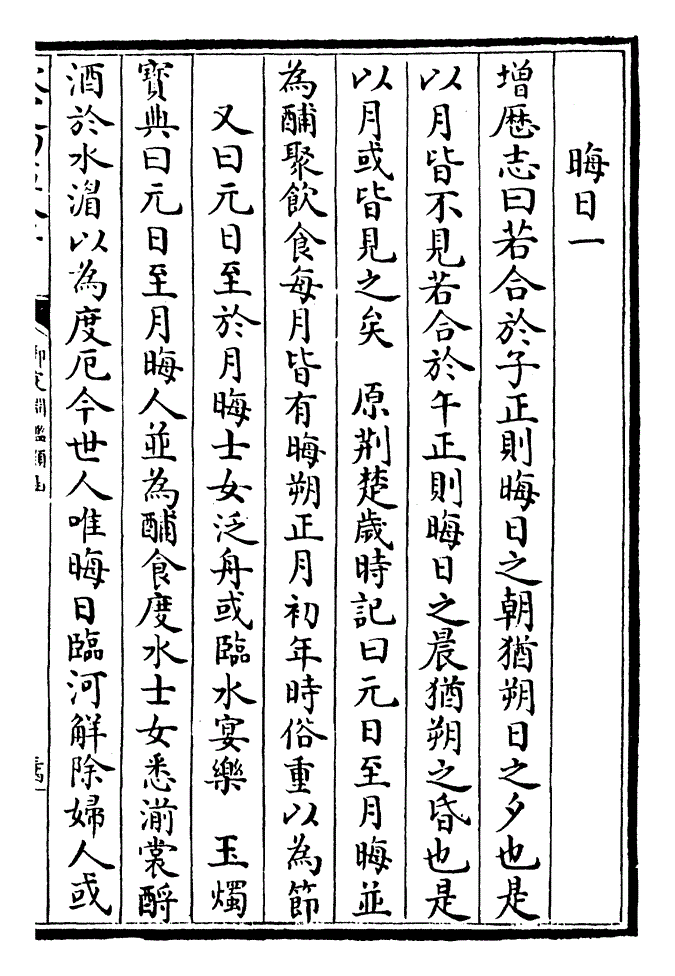 晦日一
增厯志曰若合於子正則晦日之朝猶朔日之夕也是
以月皆不見若合於午正則晦日之晨猶朔之昏也是
以月或皆見之矣　原荆楚歲時記曰元日至月晦並
為酺聚飲食每月皆有晦朔正月初年時俗重以為節
又曰元日至於月晦士女泛舟或臨水宴樂　玉燭
寶典曰元日至月晦人並為酺食度水士女悉湔裳酹
酒於水湄以為度厄今世人唯晦日臨河解除婦人或
御定淵鑑類函